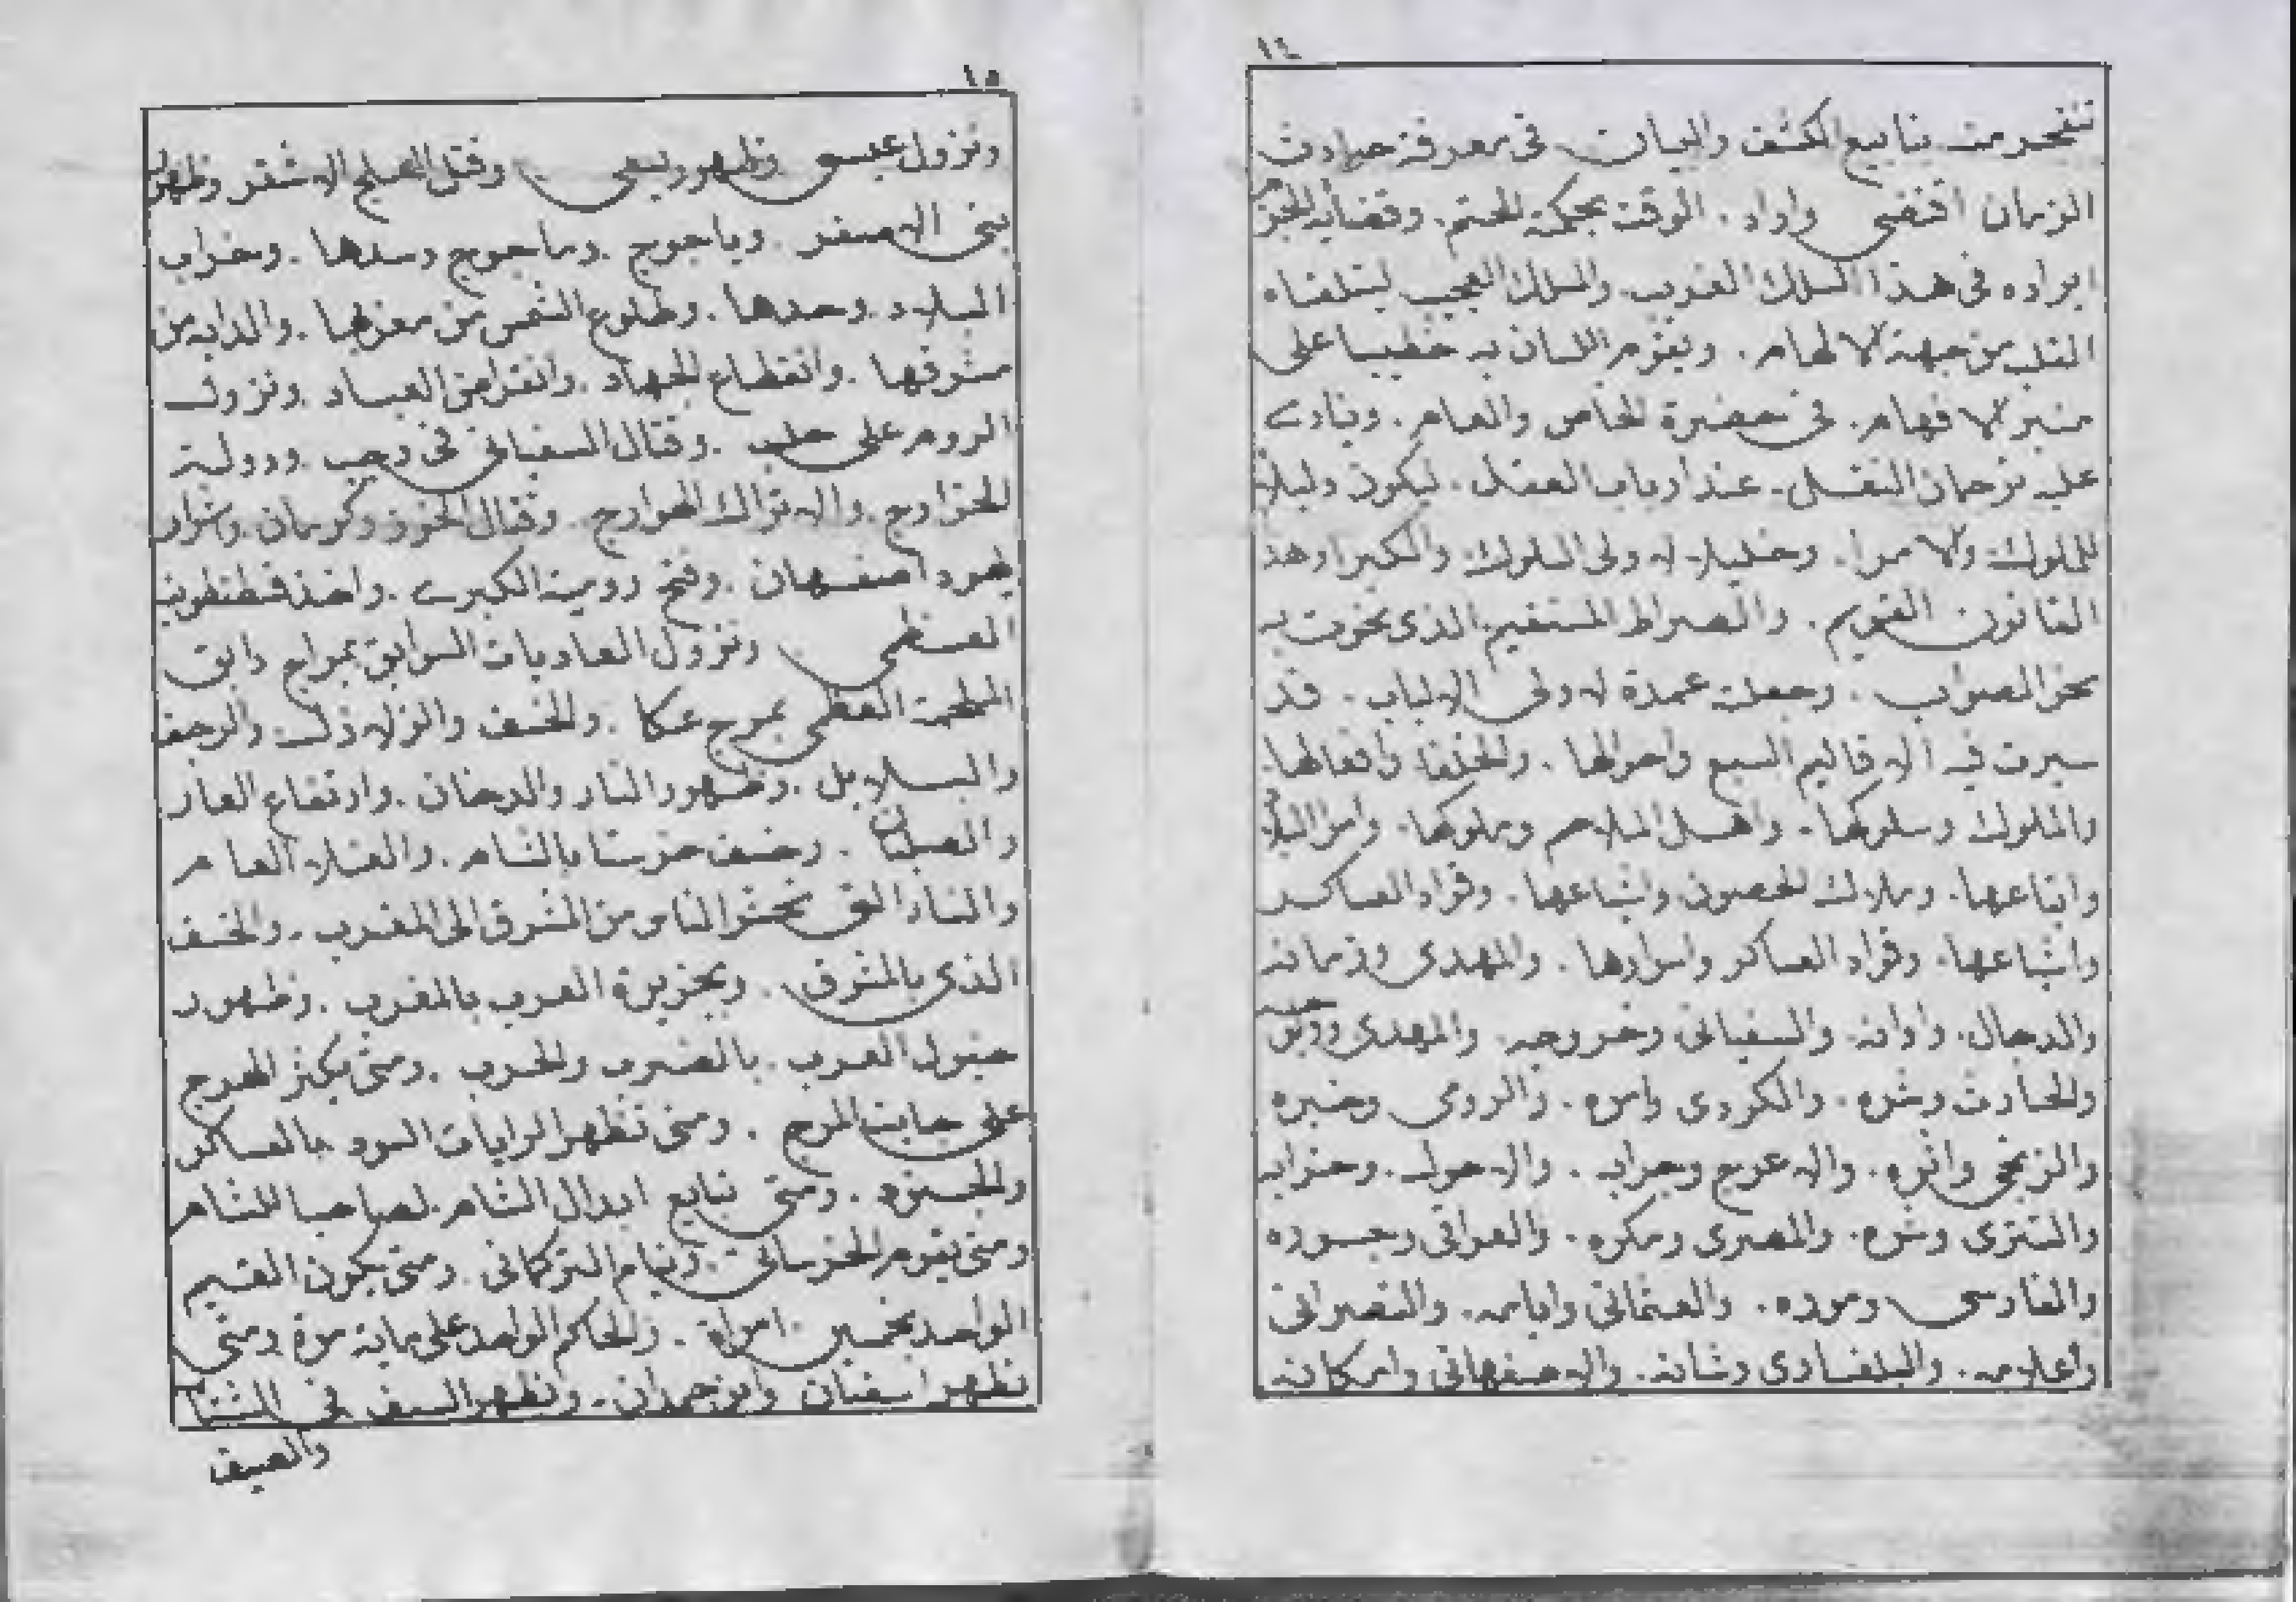 ١٤
تنفجر من ينابيع الكشف والبيان في معرفة حوادث
الزمان اقتضى واراد . الوقت بحكمة الحتم . وقضايه
ايراده في هذا السلك الغريب . والملك العجيب ليتلقاه
القلب من جهة الالهام . ويقوم اللسان به خطيبا على
منبر الافهام . في حضرة الخاص والعام . وينادى
عليه ترجمان النقل . عند ارباب العقل . ليكون دليلا
للملوك والامرا . وخليلا لاولى السلوك والكبرا وهذ
القانون القويم . والصراط المستقيم . الذى نحوت به
نحو الصواب . وجعلته عمدة لاولى الالباب . قد
سيرت فيه الاقاليم السبع واحوالها . والخلفا وافعالها .
والملوك وسلوكها . واهل الملاحم وملوكها . وامرا البلاد
واتباعها . وملاك الحصون واشياعها . وقواد العساكر
واشياعها . وقواد العساكر واسرارها . والمهدى وزمانه
والدجال . واوانه . والسفياني وخروجه . والمهدى
والحارث وشره . والكردى وامره . والرومى وخبره
والزنجى واثره . والاعرج وجرابه . والاحول . وخرابه
والتترى وشره . والمصرى ومكره . والعراقى وجسوره
والفارسى ومروره . والعثمانى وايامه . والنصرانى
واعلامه . والبلغارى وشانه . والاصفهانى وامكانه
١٥
ونزول عيسى وظهور يحيى وقتل العلج الاشقر وظهور
بنى الاصفر . وياجوج . وماجوج وسدها . وخراب
البلاد . وحدها . وطلوع الشمس من مغربها . والدابه من
مشرقها . وانقطاع الجهاد . وانقراض العباد . ونزول
الروم على حلب . وقتال السفيانى فى رجب . ودولة
الخوارج . والاتراك الهوارج . وقتال الخوز وكرمان .
يهود اصفهان . وفتح رومية الكبرى . واخذ قسطنطونيه
العظمى ونزول العاديات السوابق بمراج دابق
الملحمة العظمى بمرج عكا . والخسف والزلازل . والرجف
والبلابل . وظهور النار والدخان . وارتفاع العار
والصلبان . وخسف حرستا بالشام . والغلا العام
والنار التى تحشر الناس من المشرق الى المغرب . والخسف
الذى بالمشرق . وبجزيرة العرب بالمغرب . وظهور
خيول العرب . بالضرب والحرب . ومتى يكثر الهرج
على جانب المرج . ومتى تظهر الرايات السود بالعساكر
والجنود . ومتى تبايع ابدال الشام . لصاحب الشام
ومتى يقوم الخرسانى . وينام التركمانى . ومتى يكون القيم
الواحد بخمسين . امراة . والحاكم الواحد على ماية مرة ومتى
تظهر اسفنان وابن حمدان . وتظهر السيف فى الشتا
والصيف